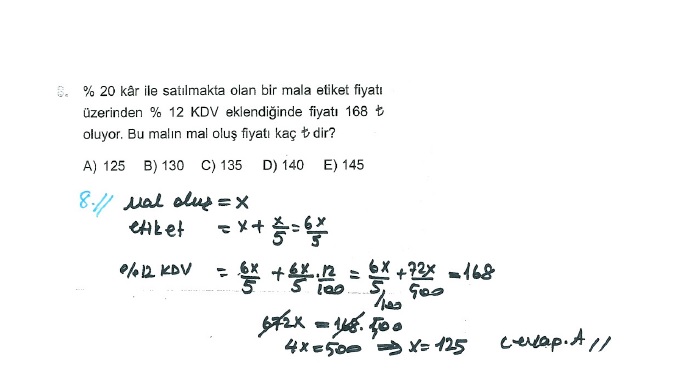 8. % 20 kâr ile satılmakta olan bir mala etiket fiyatı
üzerinden % 12 KDV eklendiğinde fiyatı 168 ₺
oluyor. Bu malın mal oluş fiyatı kaç ₺ dir?
A) 125 B) 130 C) 135 D) 140 E) 145
8.// Mal oluş = x
etiket = x + x/5 = 6x/5
%12 KDV = 6x/5 + 6x/5 . 12/100 = 6x/5 /100 + 72x/500 = 168
672x = 168. 500
4x = 500 ⇒ x = 125 Cevap. A //